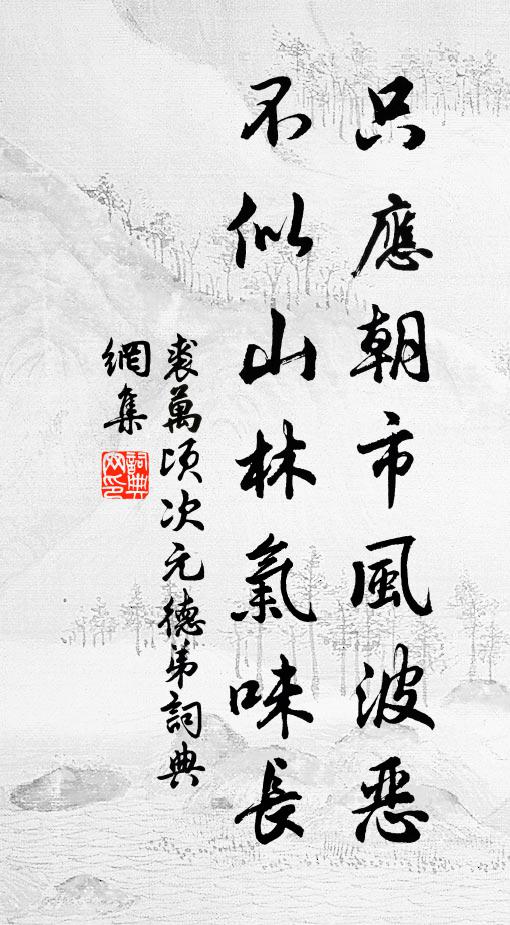 只應朝市風波惡
不似山林氣味長
裘萬頃次元德弟詞典
網集
詞典網印